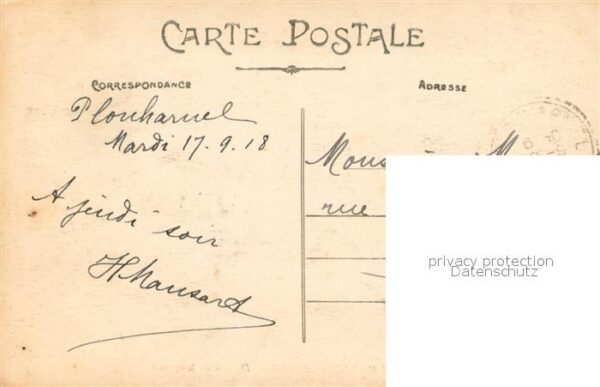 CARTE POSTALE
CORRESPONDANCE
ADRESSE
Plouharnel
Mardi 17.9.18
A jeudi soir
HMansart
rue
privacy protection
Datenschutz